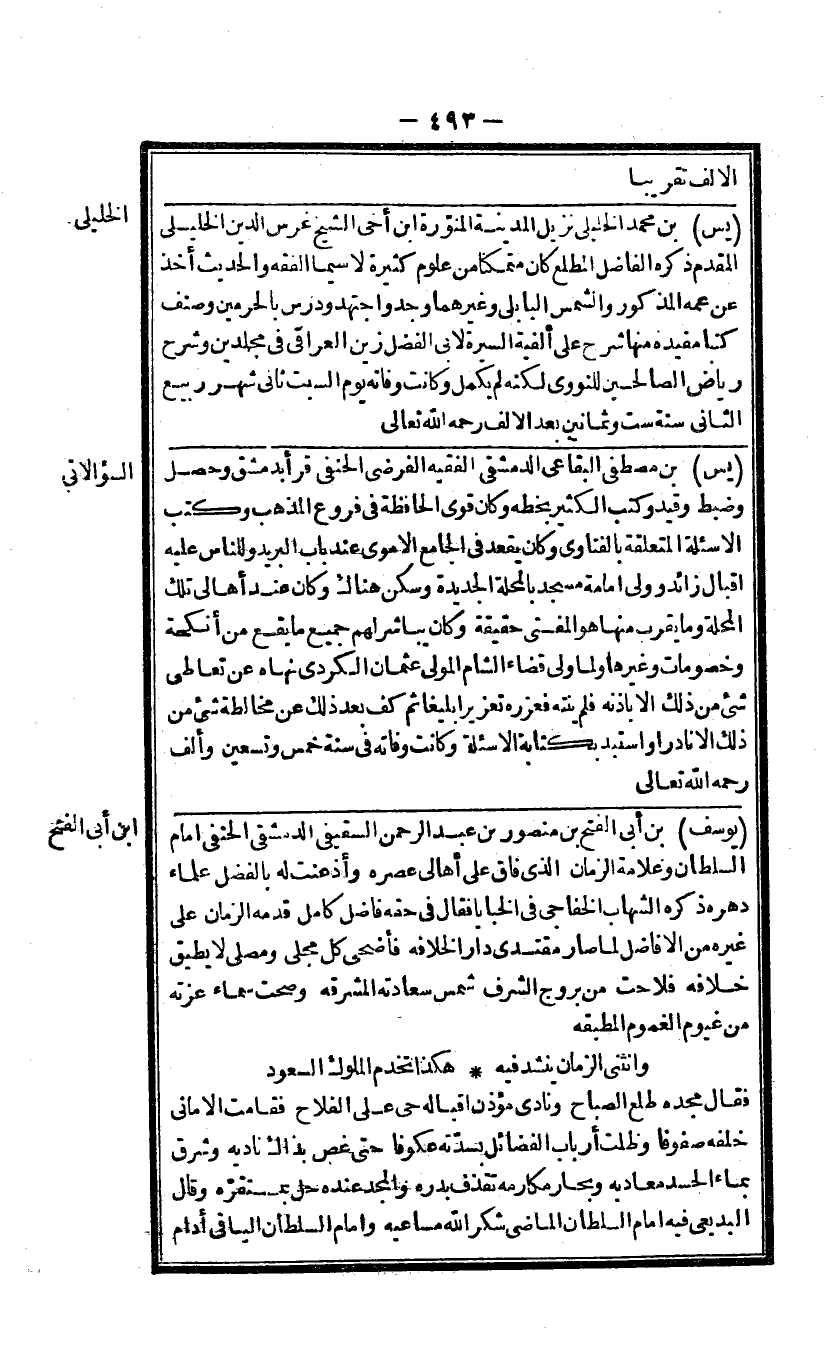 — ٤٩٣ —
الالف تقريبا
الخليلى
(يس) بن محمد الخليلى نزيل المدينة المنورة ابن أخى الشيخ غرس الدين الخليلى
المقدم ذكره الفاضل المطلع كان متمكنا من علوم كثيرة لا سيما الفقه والحديث أخذ
عن عمه المذكور والشمس البابلى وغيرهما وجد واجتهد ودرس بالحرمين وصنف
كتبا مفيده منها شرح على ألفية السيرة لابى الفضل زين العراقى فى مجلدين وشرح
رياض الصالحين للنووى لكنه لم يكمل وكانت وفاته يوم السبت ثانى شهر ربيع
الثانى سنة ست وثمانين بعد الالف رحمه الله تعالى
السؤالاتي
(يس) بن مصطفى البقاعى الدمشقى الفقيه الفرضى الحنفى قرأ بدمشق وحصل
وضبط وقيد وكتب الكثير بخطه وكان قوى الحافظة فى فروع المذهب وكتب
الاسئلة المتعلقة بالفتاوى وكان يقعد فى الجامع الاموى عند باب البريد وللناس عليه
اقبال زائد وولى امامة مسجد بالمحلة الجديدة وسكن هناك وكان عند أهالى تلك
المحلة وما يقرب منها هو المفتى حقيقة وكان يباشر لهم جميع ما يقع من أنكحة
وخصومات وغيرها ولما ولى قضاء الشام المولى عثمان الكردى نهاه عن تعاطى
شئ من ذلك الا باذنه فلم ينته فعزره تعزيرا بليغا ثم كف بعد ذلك عن مخالطة شئ من
ذلك الا نادرا واستبد بكتابة الاسئلة وكانت وفاته فى سنة خمس وتسعين وألف
رحمه الله تعالى
ابن أبى الفتح
(يوسف) بن أبى الفتح بن منصور بن عبد الرحمن السقيفى الدمشقى الحنفى امام
السلطان وعلامة الزمان الذى فاق على أهالى عصره وأذعنت له بالفضل علماء
دهره ذكره الشهاب الخفاجى فى الخبايا فقال فى حقه فاضل كامل قدمه الزمان على
غيره من الافاضل لما صار مقتدى دار الخلافه فأضحى كل مجلى ومصلى لا يطيق
خلافه فلاحت من بروج الشرف شمس سعادته المشرقه وصحت سماء عزته
من غيوم الغموم المطبقه
وانثنى الزمان ينشد فيه * هكذا تخدم الملوك السعود
فقال مجده طلع الصباح ونادى مؤذن اقباله حى على الفلاح فقامت الامانى
خلفه صفوفا وظلت أرباب الفضائل بسدته عكوفا حتى غص بذاك ناديه وشرق
بماء الحسد معاديه وبحار مكارمه تقذف بدره والمجد عنده حل بمستقره وقال
البديعى فيه امام السلطان الماضى شكر الله مساعيه وامام السلطان الباقى أدام